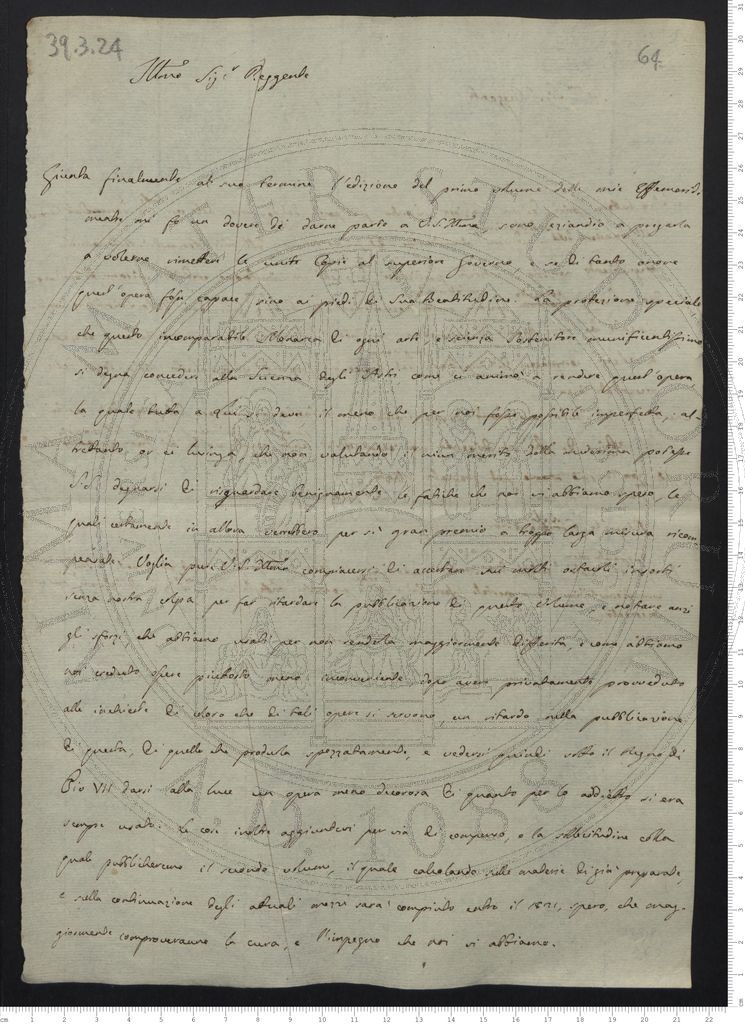 39.3.24
64
Illmo Sigr Reggente
Giunta finalmente al suo termine l'edizione del primo volume delle mie Effemeridi,
mentre mi fo un dovere di darne parte a V.S. Illma, sono eziandio a pregarla
a volerne rimettere le unite Copie al superiore Governo, e se di tanto onore
quest'opera fosse capace sino ai piedi di Sua Beatitudine. La protezione speciale,
che questo incomparabile Monarca di ogni arte, e scienza Sostenitore munificentissimo
si degna concedere alla Scienza degli Astri come ci animò a rendere quest'opera
la quale tutta a Lui si deve il meno che per noi fosse possibile imperfetta, al
trettanto or ci lusinga, che non valutando il niun merito della medesima potesse
degnarsi di risguardare benignamente le fatiche che noi vi abbiamo speso, le
quali certamente in allora verrebbero per sì gran premio a troppo larga misura ricom
pensate. Voglia pure V.S. Illma compiacersi di accertare sui molti ostacoli insorti
senza nostra colpa per far ritardare la pubblicazione di questo Volume, e notare anzi
gli sforzi, che abbiamo usati per non renderla maggiormente differita, e come abbiamo
noi creduto essere piuttosto meno inconveniente dopo avere privatamente provveduto
alle inchieste di coloro che di tali opere si servono, un ritardo nella pubblicazione
di questa, di quello che produrla spezzatamente, e vedersi quindi sotto il Regno di
Pio VII darsi alla luce un opera meno decorosa di quanto per lo addietro si era
sempre usato. Le cose inoltre aggiuntevi per via di compenso, e la sollecitudine colla
quale pubblicheremo il secondo volume, il quale calcolando sulle materie di già preparate,
e sulla continuazione degli attuali mezzi sarà compiuto entro il 1821, spero, che mag-
giormente comproveranno la cura, e l'impegno che noi vi abbiamo.